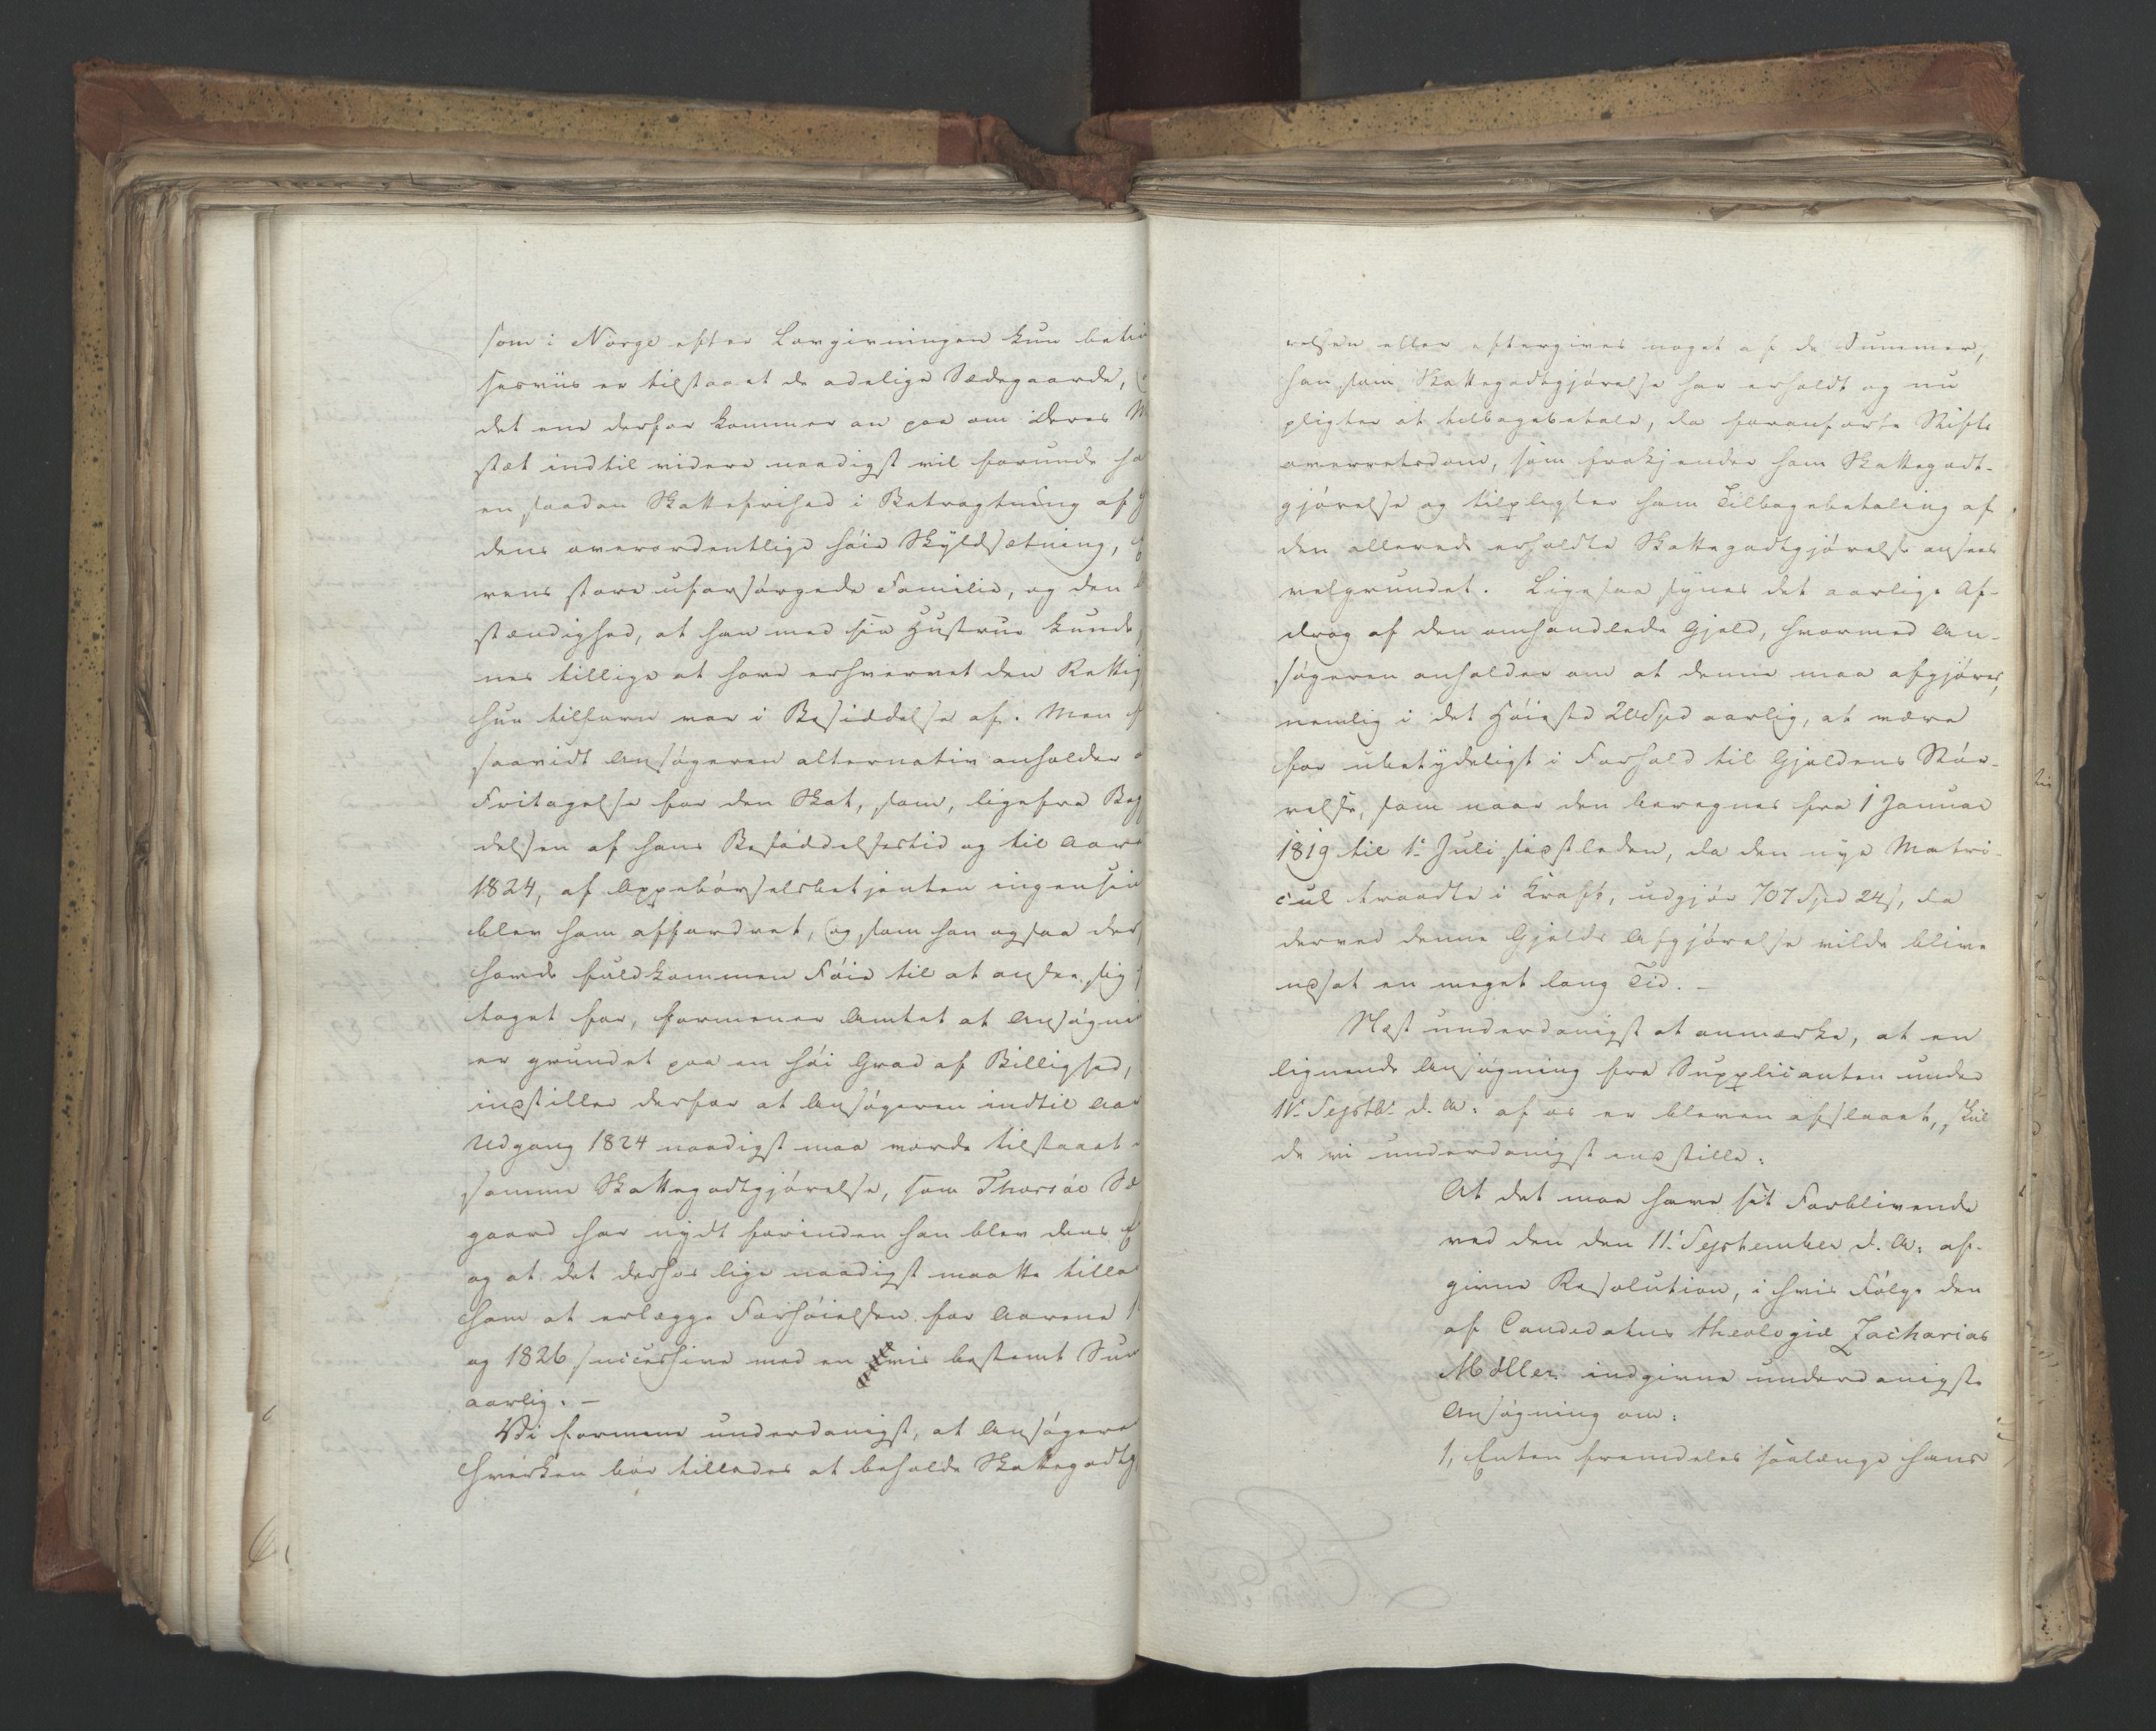 som i Norge efter Lovgivningen kun beti
sesviis er tilstaaet de adelige Sædegaarde,
det ene derfor kommer an paa om Deres M
stæt indtil videre naadigst vil forunde ha
en saadan Skattefrihed i Betragtning af G
dens overordentlige høie Skyldsætning,
rens store uforsørgede Familie, og den
stændighed, at han med sin Hustrue kunde
nes tillige at have erhvervet den Rettig
hun tilforn var i Besiddelse af. Men
saavidt Ansøgeren alternativ anholder
Fritagelse for den Skat, som, ligefra Beg
delsen af hans Besiddelsestid og til Aaret
1824, af Oppebørselsbetjenten ingensin
blev ham affordret, og som han ogsaa der
havde fuldkommen Føie til at ansee sig
taget for, formener Amtet at Ansøgni
er grundet paa en høi Grad af Billighed,
indstiller derfor at Ansøgeren indtil Aar
Udgang 1824 naadigst maa vorde tilstaaet
samme Skattegodtgjørelse, som Thorsøe Sæ
gaard har nydt forinden han blev dens
og at det derhos lige naadigst maatte tilla
ham at erlægge Forhøielsen for Aarene 1
og 1826 successive med en vis bestemt Sum
aarlig. -
Vi formene underdanigst, at Ansøgere
hverken bør tillades at beholde Skattegodtg
relsen eller eftergives noget af de Summer,
han som Skattegodtgjørelse har erholdt og nu
pligter at tilbagebetale, da foranførte Stifts
overretsdom, som frakjender ham Skattegodt-
gjørelse og tilpligter ham Tilbagebetaling af
den allerede erholdte Skattegodtgjørelse ansees
velgrundet. Ligesaa synes det aarlige Af-
drag af den omhandlede Gjeld, hvormed An-
søgeren anholder om at denne maa afgjøres,
nemlig i det Høieste 20 Spd aarlig, at være
for ubetydeligt i Forhold til Gjeldens Stør-
relse, som naar den beregnes fra 1 Januar
1819 til 1. Juli sidstleden, da den nye Matri-
cul traadte i Kraft, udgjør 707 Spd 24 s, da
derved denne Gjelds Afgjørelse vilde blive
udsat en meget lang Tid. -
Næst underdanigst at anmærke, at en
lignende Ansøgning fra Supplicanten under
11. Septbr d. A. af os er bleven afslaaet, skul
de vi underdanigst indstille:
At det maa have sit Forblivende
ved den den 11. September d. A. af-
givne Resolution, i hvis Følge den
af Candidatus theologiæ Zacharias
Møller indgivne underdanigste
Ansøgning om:
1, Enten fremdeles saalænge hans